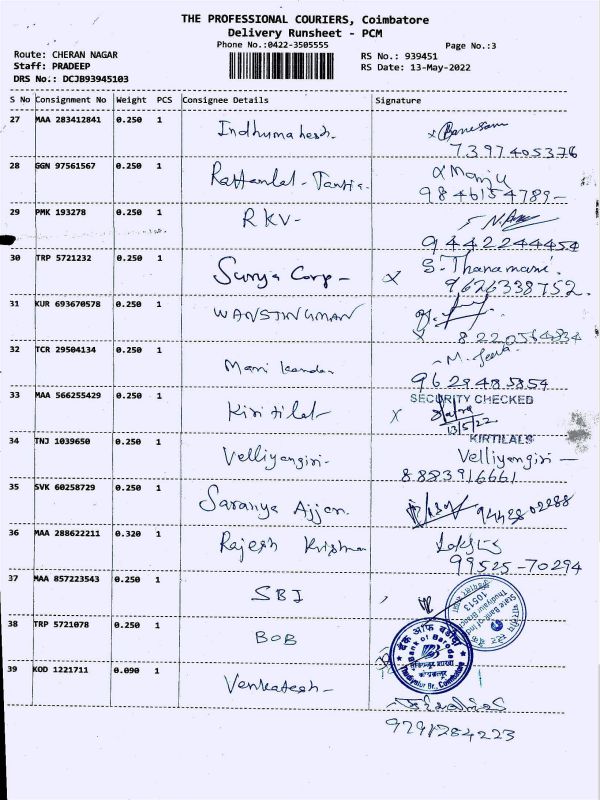 THE PROFESSIONAL COURIERS, Coimbatore
Delivery Runsheet - PCM
Phone No.:0422-3505555
Page No.:3
Route: CHERAN NAGAR
RS No.: 939451
Staff: PRADEEP
RS Date: 13-May-2022
DRS No.: DCJB93945103
S No Consignment No Weight PCS Consignee Details Signature
27 MAA 283412841 0.250 1 Indhumahesh-
7397405376
28 GGN 97561567 0.250 1 Rattanlal - Tantia - Manju
9846154789-
29 PMK 193278 0.250 1 RKV-
9442244454
30 TRP 5721232 0.250 1 Surya Corp - x S. Thanamani.
9626338752.
31 KUR 693670578 0.250 1 WANSTINGMAN
x 8220554834
32 TCR 29504134 0.250 1 Mani kandan
9629485854
33 MAA 566255429 0.250 1 Kirtilal- x SECURITY CHECKED
13/5/22
KIRTILALS
34 TNJ 1039650 0.250 1 Velliyangiri- Velliyangiri -
8883916661
35 SVK 60258729 0.250 1 Saranya Ajjen. 94428 02288
36 MAA 288622211 0.320 1 Rajesh Krishna
99525-70294
37 MAA 857223543 0.250 1 SBI
State Bank of India
Thudiyalur Branch
10513
भारतीय स्टेट बैंक
38 TRP 5721078 0.250 1 BOB
बैंक ऑफ बड़ौदा
Bank of Baroda
Thudiyalur Br., Coimbatore
39 KOD 1221711 0.090 1 Venkatesh-
9791284223